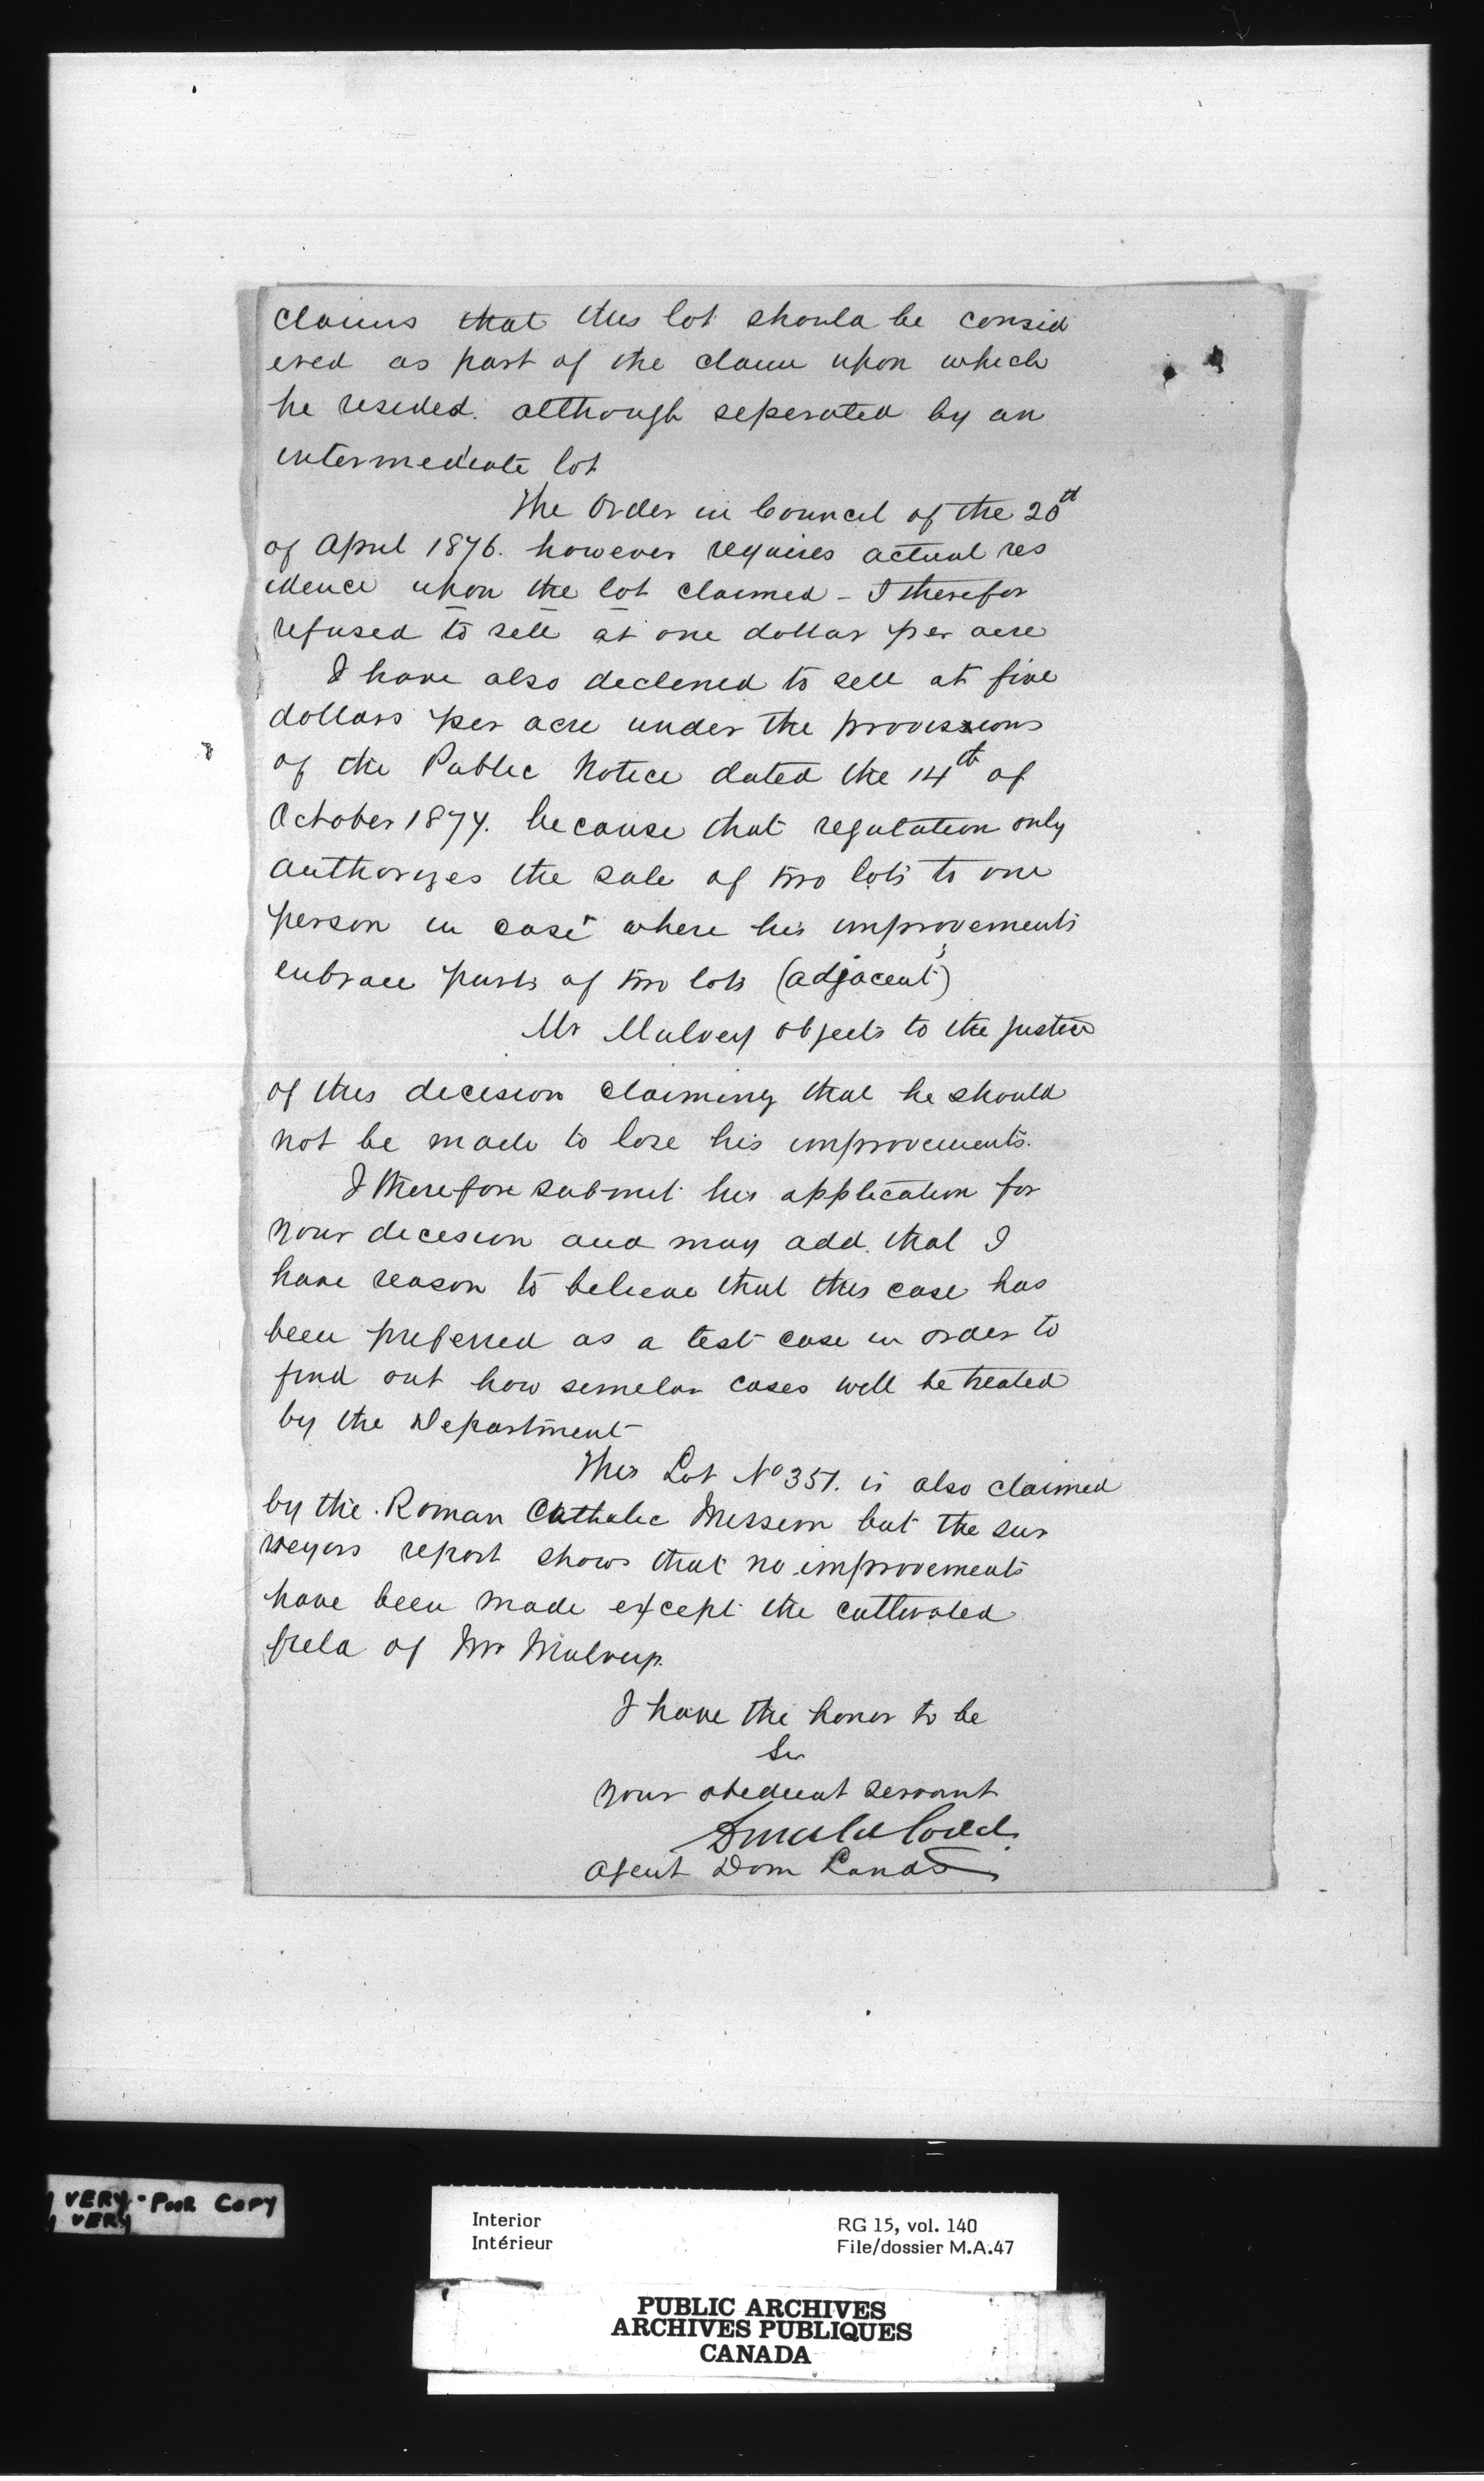 claims that this lot should be consid
ered as part of the claim upon which
he resided. although seperated by an
intermediate lot
The Order in Council of the 20th
of April 1876. however requires actual res
idence upon the lot claimed - I therefor
refused to sell at one dollar per acre
I have also declined to sell at five
dollars per acre under the provisions
of the Public Notice dated the 14th of
October 1877. because that regulation only
authorizes the sale of two lots to one
person in case where his improvements
embrace parts of two lots (adjacent)
Mr Mulvey objects to the justice
of this decision claiming that he should
not be made to lose his improvements.
I therefore submit his application for
your decision and may add. that I
have reason to believe that this case has
been preferred as a test case in order to
find out how similar cases will be treated
by the Department
This Lot No 351. is also claimed
by the Roman Catholic Mission but the sur
veyors report shows that no improvements
have been made except the cultivated
field of Mr Mulvey.
I have the honor to be
Sir
Your obedient servant
Donald Codd.
Agent Dom Lands
VERY - POOR COPY
VERY
Interior
Intérieur
RG 15, vol. 140
File/dossier M.A.47
PUBLIC ARCHIVES
ARCHIVES PUBLIQUES
CANADA